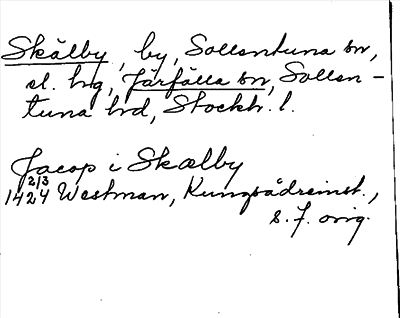 Skälby, by, Sollentuna sn,
el. hg, Järfälla sn, Sollen-
tuna hd, Stockh. l.
Jacop i Skælby
2/3
1424 Westman, Kungsådreinst.,
s. 7. orig.